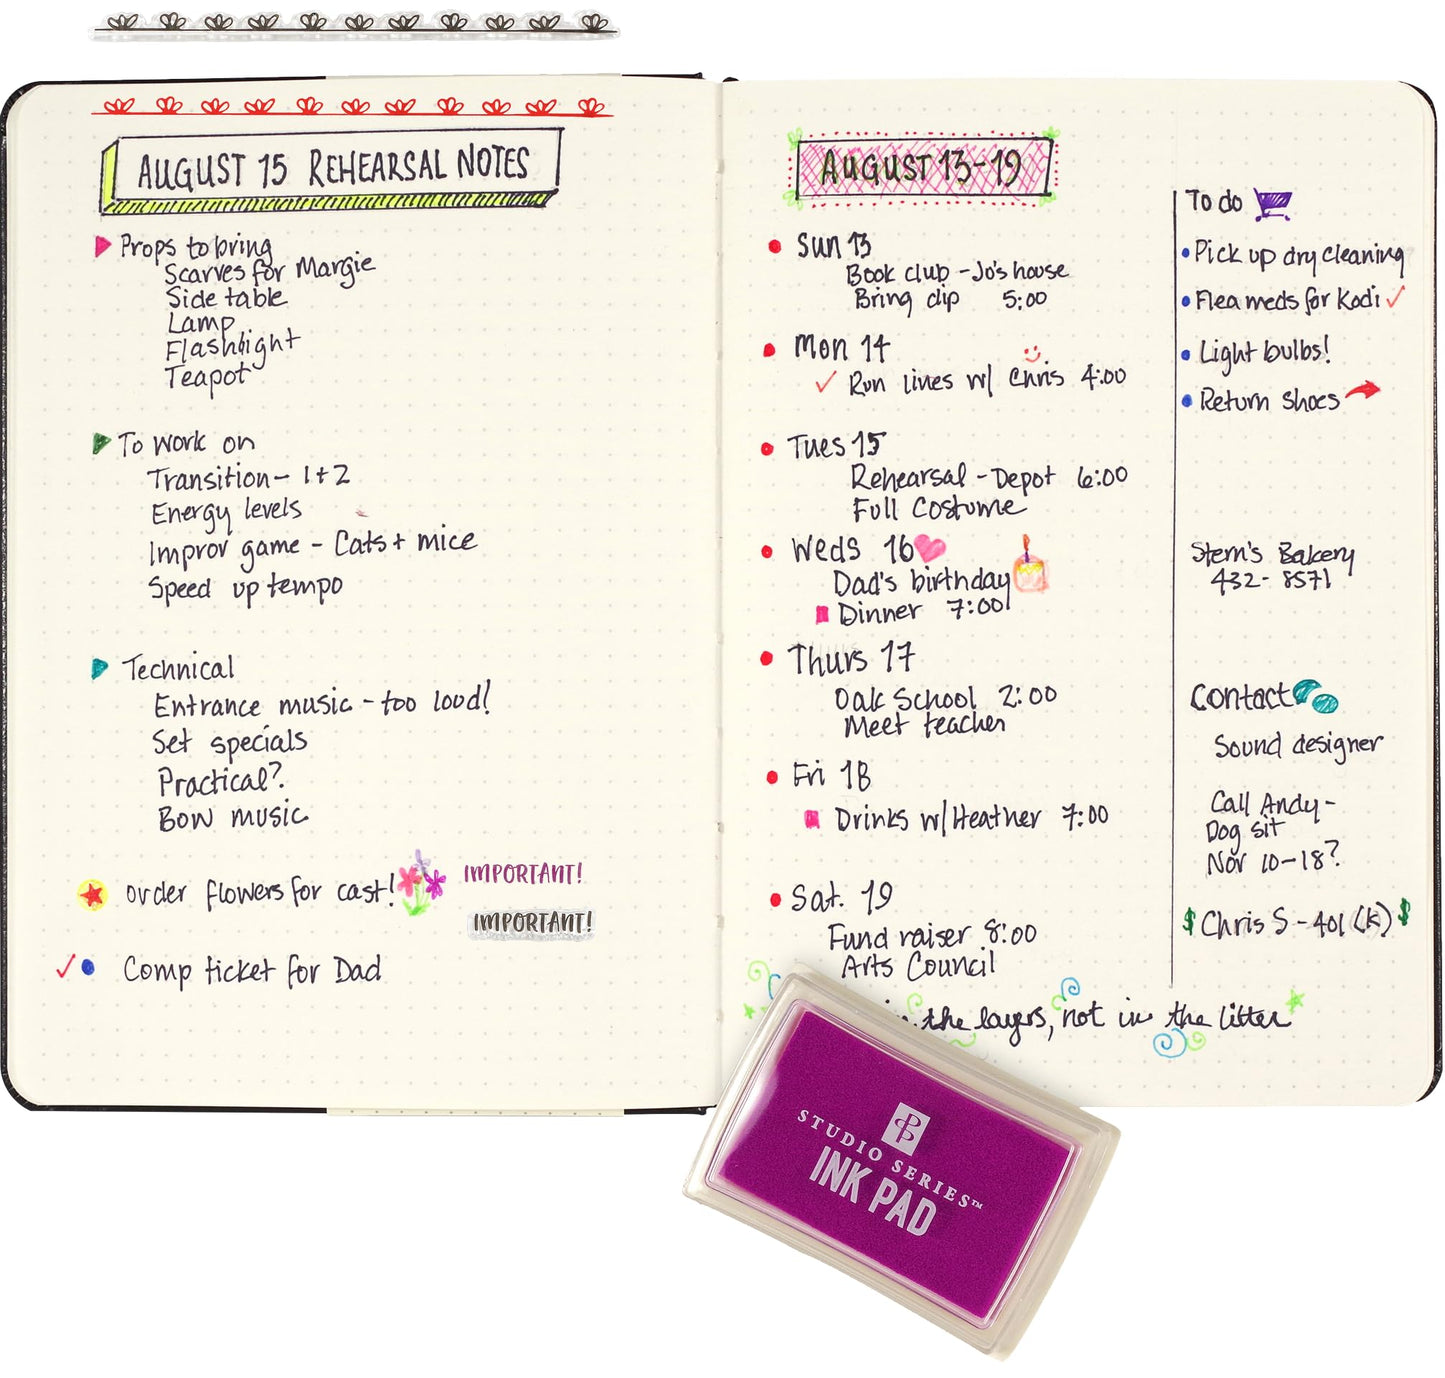 AUGUST 15 REHEARSAL NOTES
Props to bring
Scarves for Margie
Side table
Lamp
Flashlight
Teapot
To work on
Transition - 1+2
Energy levels
Improv game - Cats + mice
Speed up tempo
Technical
Entrance music - too loud!
Set specials
Practical?
Bow music
order flowers for cast!
IMPORTANT!
IMPORTANT!
Comp ticket for Dad
AUGUST 13-19
Sun 13
Book club - Jo's house
Bring dip 5:00
Mon 14
Run lines w/ Chris 4:00
Tues 15
Rehearsal - Depot 6:00
Full Costume
Weds 16
Dad's birthday
Dinner 7:00
Thurs 17
Oak School 2:00
Meet teacher
Fri 18
Drinks w/ Heather 7:00
Sat. 19
Fund raiser 8:00
Arts Council
the layers, not in the litter
To do
Pick up dry cleaning
Flea meds for Kodi
Light bulbs!
Return shoes
Stern's Bakery
432-8571
Contact
Sound designer
Call Andy-
Dog sit
Nov 10-18?
$ Chris S - 401(K) $
STUDIO SERIES™
INK PAD